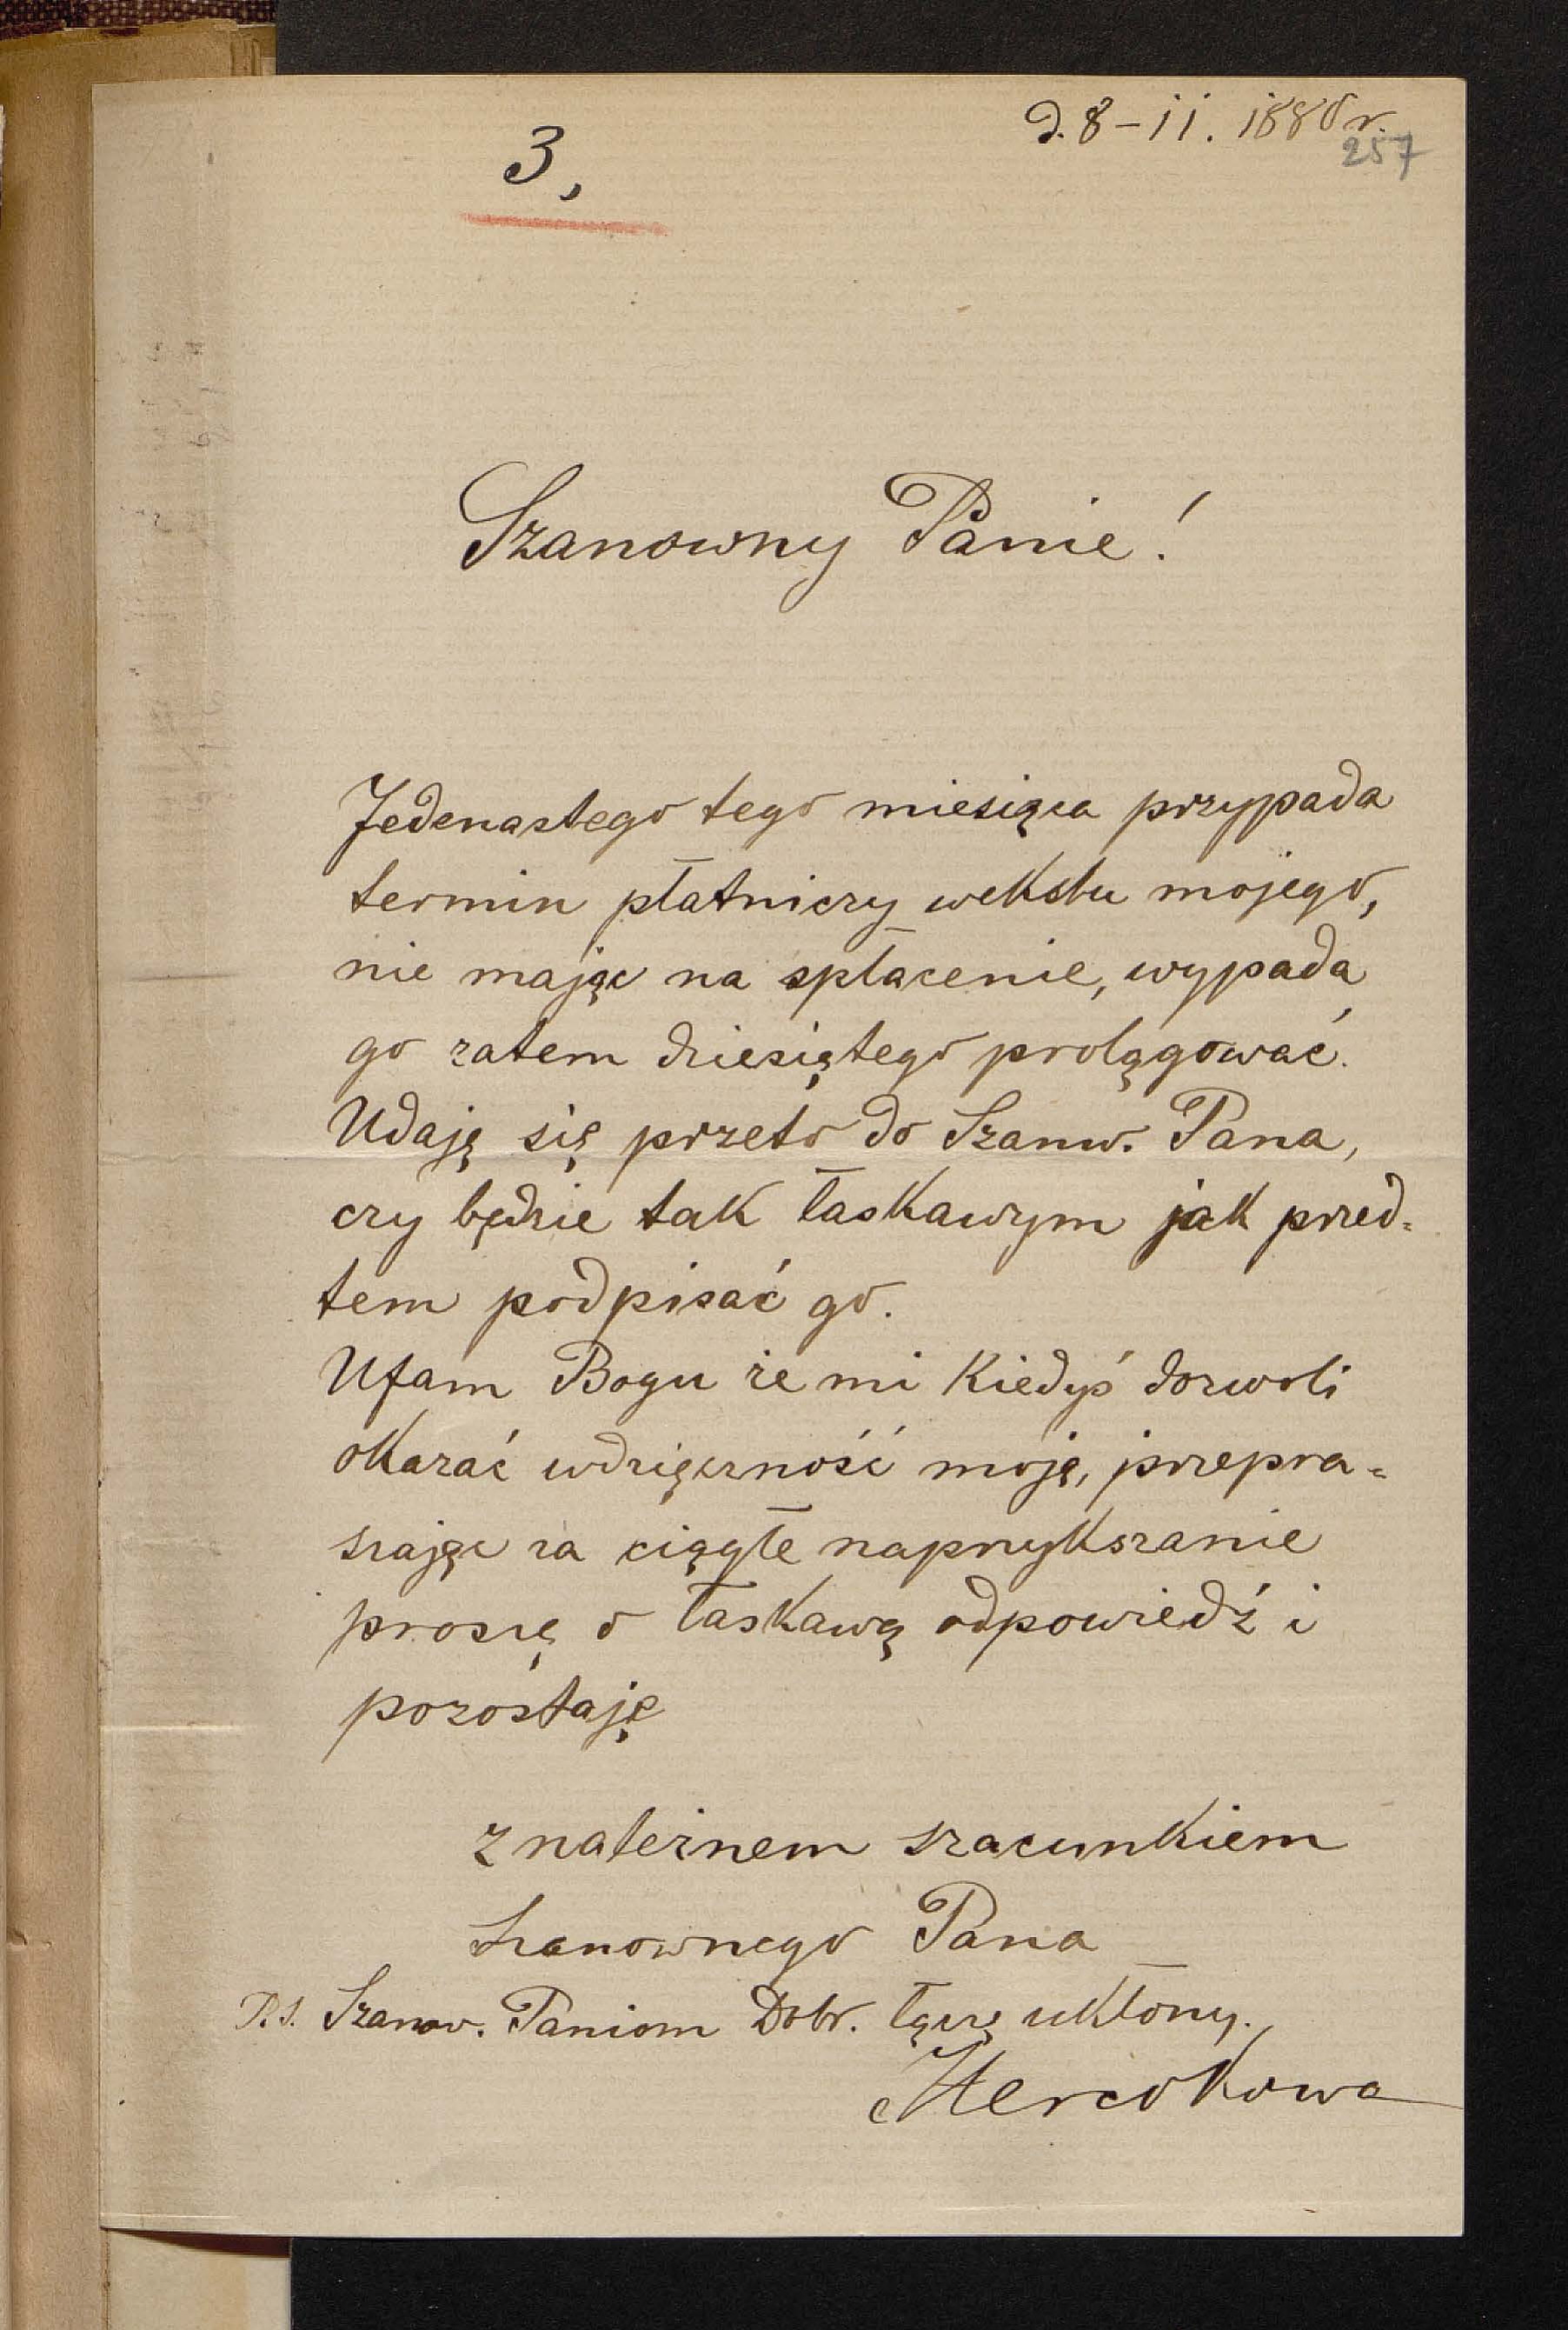 d. 8 – 11. 1880 r.
257
3,
Szanowny Panie!
Jedenastego tego miesiąca przypada
termin płatniczy wekslu mojego,
nie mając na spłacenie, wypada
go zatem dziesiątego prolągować.
Udaję się przeto do Szanw. Pana,
czy będzie tak łaskawym jak przed=
tem podpisać go.
Ufam Bogu że mi kiedyś dozwoli
okazać wdzięczność moję, przepra=
szając za ciągłe naprzykszanie
proszę o łaskawą odpowiedź i
pozostaję
z należnem szacunkiem
Szanownego Pana
P.S. Szanow. Paniom Dobr. łączę ukłony.
Mercokowa